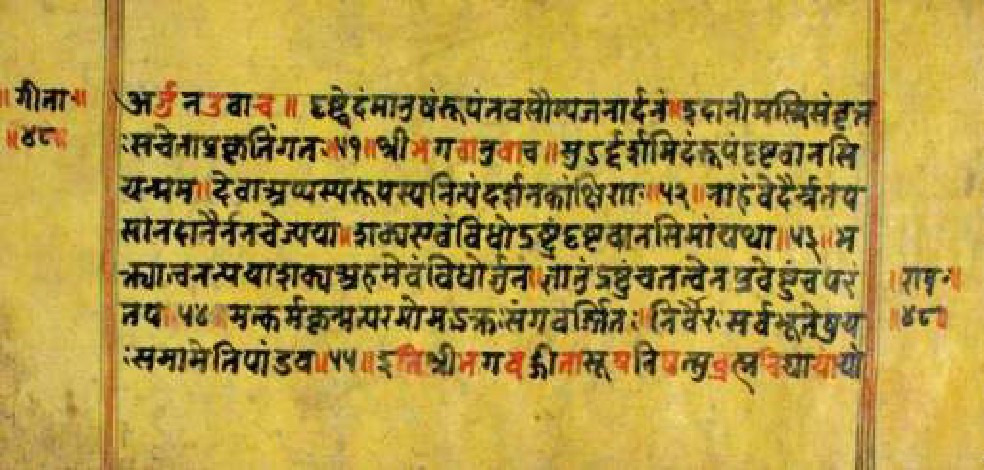 ॥गीता॥
॥४८॥
अर्जुनउवाच॥ दृष्ट्वेदंमानुषंरूपंतवसौम्यजनार्दनं॥इदानीमस्मिसंवृत्त
ःसचेताप्रकृतिंगतः॥५१॥श्रीभगवानुवाच॥सुऽर्दर्शमिदंरूपंदृष्टवानसि
यन्मम॥देवाअप्यस्यरूपस्यनित्यंदर्शनकांक्षिणः॥५२॥नाहंवेदैर्नतप
सानदानैर्ननचेज्यया॥शक्यएवंविधोऽष्टुंदृष्टवानसिमांयथा॥५३॥भ
क्त्यात्वनन्ययाशक्यअहमेवंविधोर्जुनं॥ज्ञातुंऽष्टुंचतत्वेनप्रवेष्टुंचपरं
तप॥५४॥मत्कर्मकृन्मत्परमोमऽक्तःसंगवर्जितः॥निर्वैरःसर्वभूतेषुय
ःसमामेतिपांडव॥५५॥इतिश्रीभगवद्गीतासूपनिषत्सुब्रह्मविद्यायायो
॥राम॥
॥४८॥